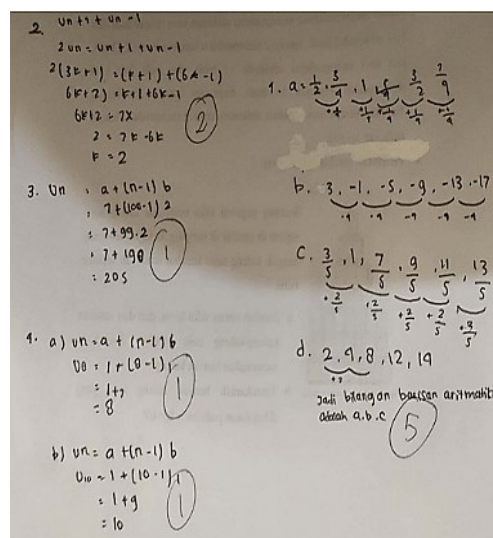 2. Un+1 + Un-1
2Un = Un+1 + Un-1
2(3k+1) = (k+1) + (6k-1)
6k+2) = k+1+6k-1
6k+2 = 7k
2 = 7k-6k
k = 2
2
3. Un = a+(n-1) b
: 7+(100-1) 2
: 7+99.2
: 7+198
: 205
1
4. a) Un = a + (n-1) b
U8 = 1+(8-1)1
= 1+7
= 8
1
b) Un = a+(n-1) b
U10 = 1+(10-1)1
= 1+9
= 10
1
1. a = 1/2, 3/4, 1, 5/4, 3/2, 7/4
+1/4 +1/4 +1/4 +1/4
b. 3, -1, -5, -9, -13, -17
-4 -4 -4 -4
c. 3/5, 1, 7/5, 9/5, 11/5, 13/5
+2/5 +2/5 +2/5 +2/5
d. 2, 4, 8, 12, 14
+2
Jadi bilangan barisan aritmatik
adalah a.b.c
5